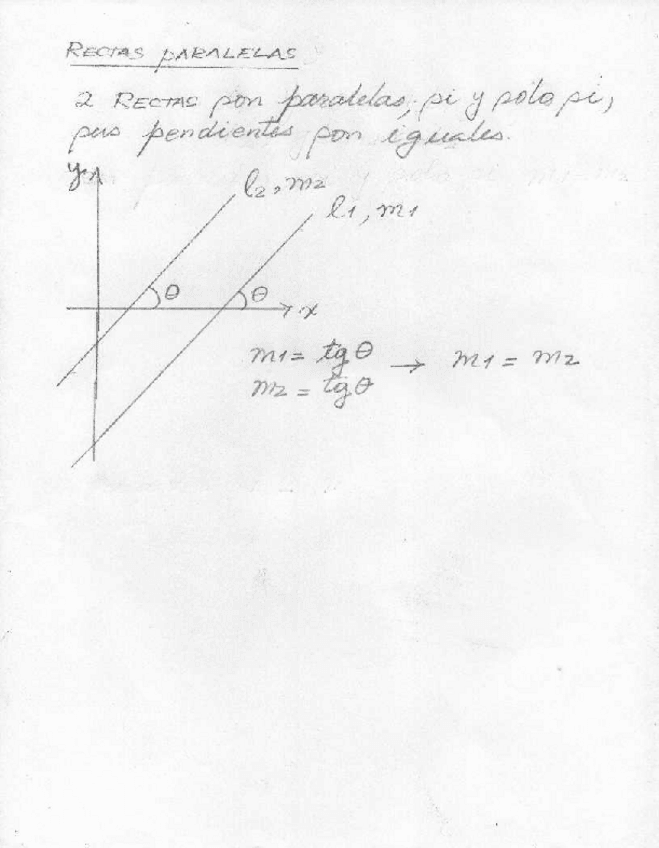 RECTAS PARALELAS
2 RECTAS son paralelas, si y solo si,
sus pendientes son iguales.
y
l2, m2
l1, m1
θ θ
x
m1 = tgθ → m1 = m2
m2 = tgθ